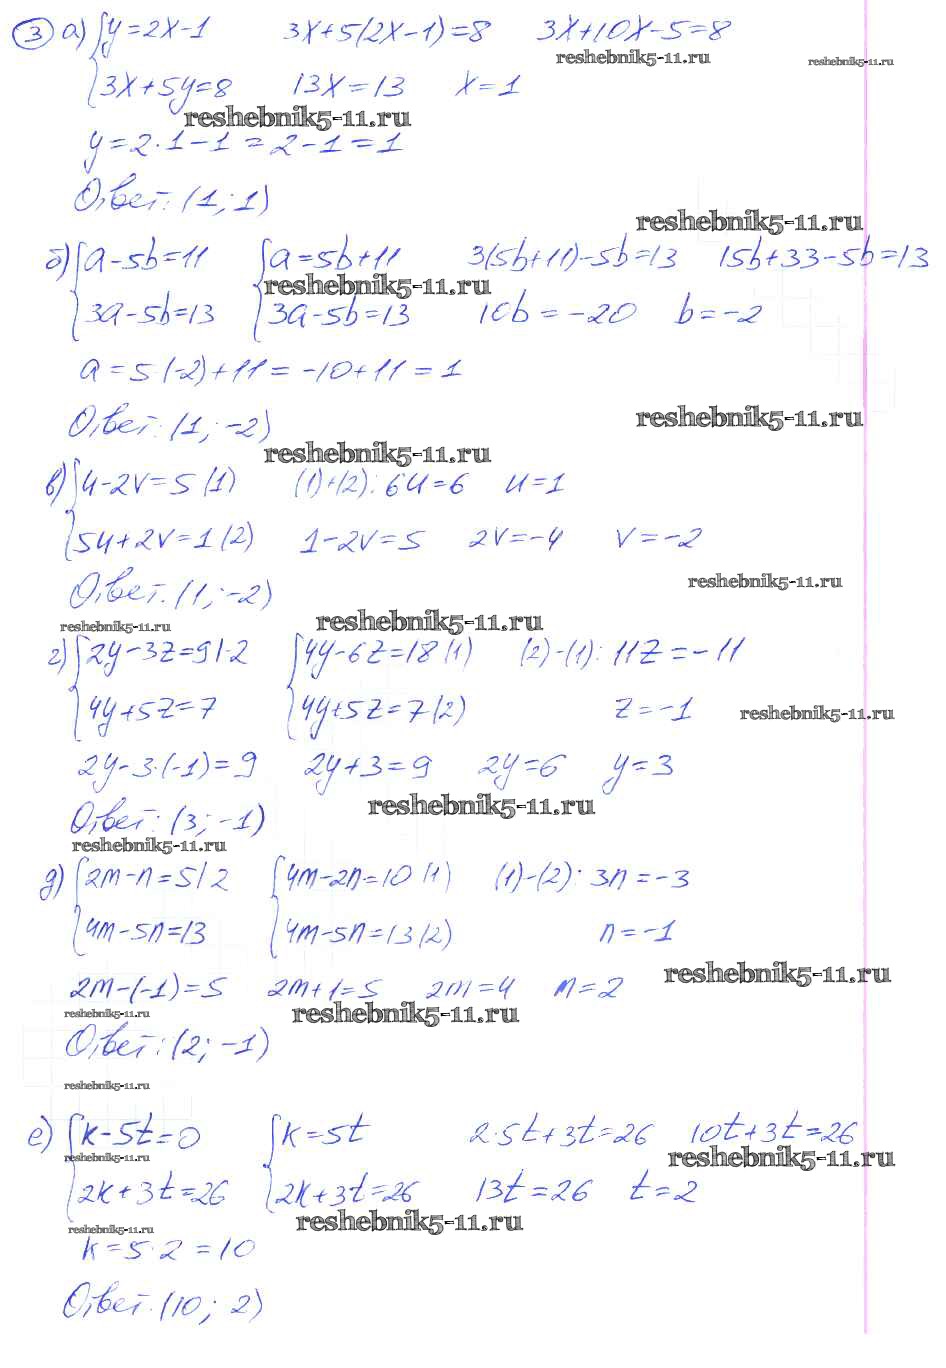 3 а) { y=2x-1 3x+5(2x-1)=8 3x+10x-5=8
reshebnik5-11.ru reshebnik5-11.ru
3x+5y=8 13x=13 x=1
reshebnik5-11.ru
y=2·1-1=2-1=1
Ответ: (1; 1)
reshebnik5-11.ru
б) { a-5b=11 { a=5b+11 3(5b+11)-5b=13 15b+33-5b=13
reshebnik5-11.ru
3a-5b=13 3a-5b=13 10b=-20 b=-2
a=5·(-2)+11=-10+11=1
Ответ: (1; -2)
reshebnik5-11.ru
reshebnik5-11.ru
в) { u-2v=5 (1) (1)+(2): 6u=6 u=1
5u+2v=1 (2) 1-2v=5 2v=-4 v=-2
Ответ: (1; -2)
reshebnik5-11.ru
reshebnik5-11.ru reshebnik5-11.ru
г) { 2y-3z=9|·2 { 4y-6z=18 (1) (2)-(1): 11z=-11
4y+5z=7 4y+5z=7 (2) z=-1
reshebnik5-11.ru
2y-3·(-1)=9 2y+3=9 2y=6 y=3
reshebnik5-11.ru
Ответ: (3; -1)
reshebnik5-11.ru
д) { 2m-n=5|2 { 4m-2n=10 (1) (1)-(2): 3n=-3
4m-5n=13 4m-5n=13 (2) n=-1
reshebnik5-11.ru
2m-(-1)=5 2m+1=5 2m=4 m=2
reshebnik5-11.ru reshebnik5-11.ru
Ответ: (2; -1)
reshebnik5-11.ru
е) { k-5t=0 { k=5t 2·5t+3t=26 10t+3t=26
reshebnik5-11.ru reshebnik5-11.ru
2k+3t=26 2k+3t=26 13t=26 t=2
reshebnik5-11.ru reshebnik5-11.ru
k=5·2=10
Ответ: (10; 2)